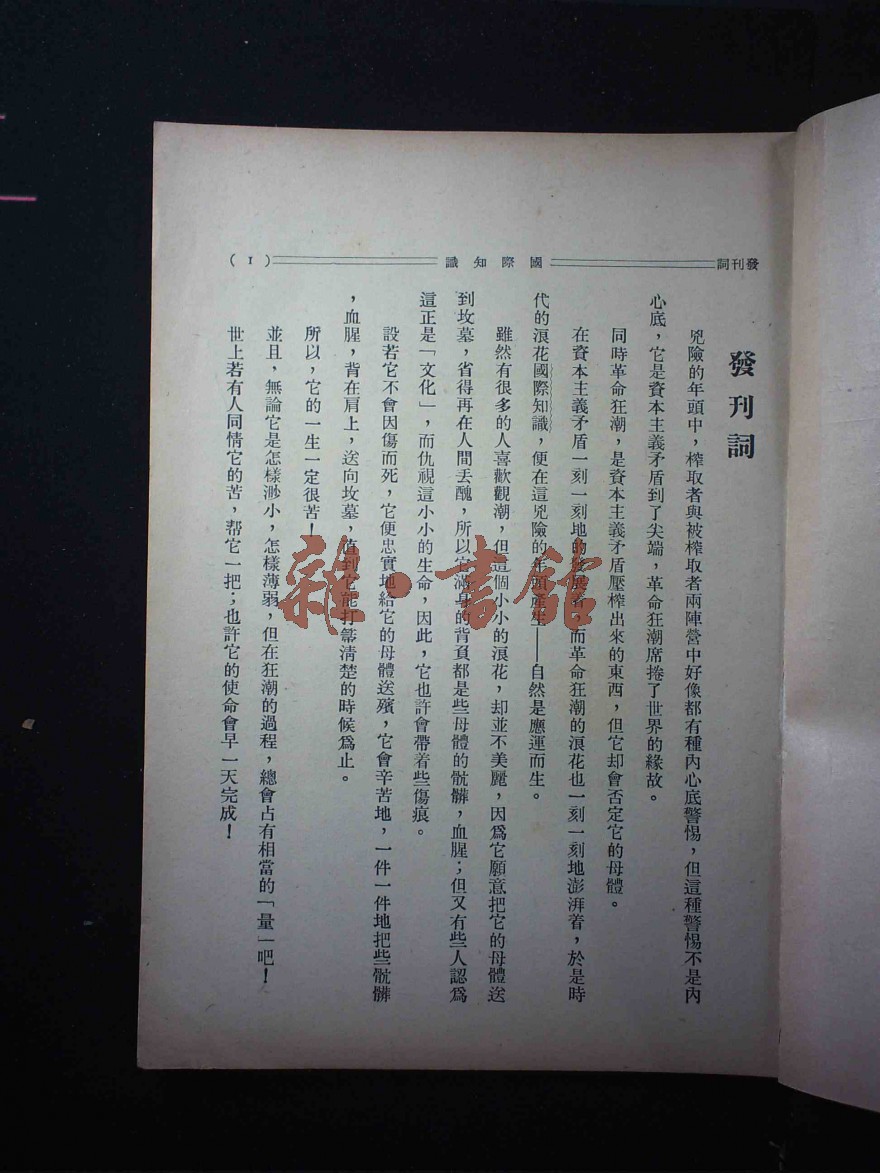 發刊詞
國際知識
(1)
發刊詞
兇險的年頭中，榨取者與被榨取者兩陣營中好像都有種內心底警惕，但這種警惕不是內
心底，它是資本主義矛盾到了尖端，革命狂潮席捲了世界的緣故。
同時革命狂潮，是資本主義矛盾壓榨出來的東西，但它却會否定它的母體。
在資本主義矛盾一刻一刻地的發展着，而革命狂潮的浪花也一刻一刻地澎湃着，於是時
代的浪花國際知識，便在這兇險的年頭產生——自然是應運而生。
雖然有很多的人喜歡觀潮，但這個小小的浪花，却並不美麗，因爲它願意把它的母體送
到坟墓，省得再在人間丟醜，所以它滿身的背負都是些母體的骯髒，血腥；但又有些人認爲
這正是「文化」，而仇視這小小的生命，因此，它也許會帶着些傷痕。
設若它不會因傷而死，它便忠實地給它的母體送殯，它會辛苦地，一件一件地把些骯髒
，血腥，背在肩上，送向坟墓，值到它能打籌清楚的時候爲止。
所以，它的一生一定很苦！
並且，無論它是怎樣渺小，怎樣薄弱，但在狂潮的過程，總會占有相當的「量」吧！
世上若有人同情它的苦，帮它一把；也許它的使命會早一天完成！
雜·書館